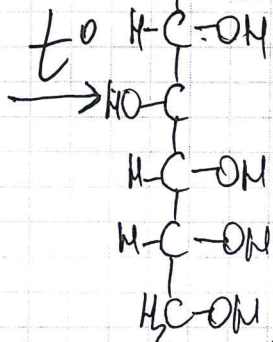 t° H-C-OH
→ HO-C
H-C-OH
H-C-OH
H₂C-OH